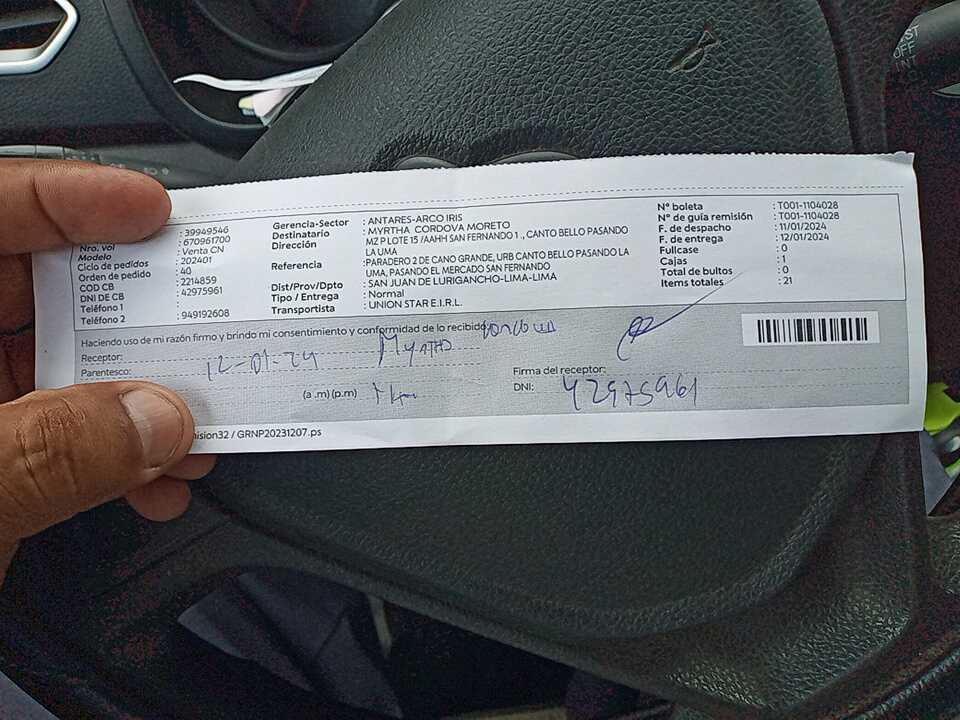 : 39949546
Nro. vol : 670961700
Modelo : Venta CN
Ciclo de pedidos : 202401
Orden de pedido : 40
COD CB : 2214859
DNI DE CB : 42975961
Teléfono 1 :
Teléfono 2 : 949192608
Gerencia-Sector : ANTARES-ARCO IRIS
Destinatario : MYRTHA CORDOVA MORETO
Dirección MZ P LOTE 15 /AAHH SAN FERNANDO 1 ., CANTO BELLO PASANDO
LA UMA
Referencia :PARADERO 2 DE CANO GRANDE, URB CANTO BELLO PASANDO LA
UMA, PASANDO EL MERCADO SAN FERNANDO
Dist/Prov/Dpto : SAN JUAN DE LURIGANCHO-LIMA-LIMA
Tipo / Entrega : Normal
Transportista : UNION STAR E.I.R.L.
N° boleta : T001-1104028
N° de guía remisión : T001-1104028
F. de despacho : 11/01/2024
F. de entrega : 12/01/2024
Fullcase : 0
Cajas : 1
Total de bultos : 0
Items totales : 21
Haciendo uso de mi razón firmo y brindo mi consentimiento y conformidad de lo recibido:
Receptor:
Parentesco: 12-01-24
(a .m) (p.m)
Firma del receptor:
DNI: 42975961
ision32 / GRNP20231207.ps
OFF